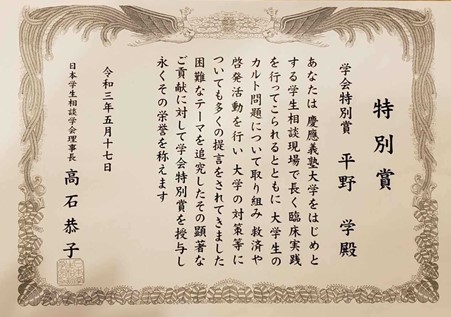 特別賞
学会特別賞 平野 学 殿
あなたは 慶應義塾大学をはじめと
する学生相談現場で長く臨床実践
を行ってこられるとともに 大学生の
カルト問題について取り組み 救済や
啓発活動を行い 大学の対策等に
ついても多くの提言をされてきました
困難なテーマを追究したその顕著な
ご貢献に対して学会特別賞を授与し
永くその栄誉を称えます
令和三年五月十七日
日本学生相談学会理事長 高石恭子